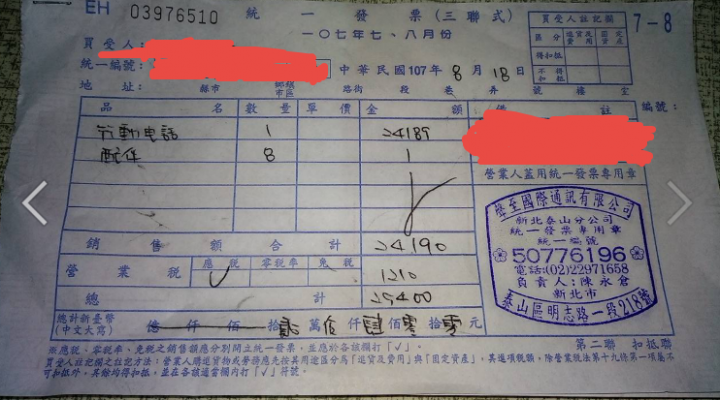 EH 03976510 統一發票(三聯式)
一○七年七、八月份
7-8
買受人註記欄
區分 進貨及費用 固定資產
得扣抵
不得扣抵
買受人:
統一編號:
中華民國107年8月18日
地址: 縣市 鄉鎮市區 路街 段 巷 弄 號 樓 室
品名 數量 單價 金額 備註 編號:
行動電話 1 24189
配件 8 1
營業人蓋用統一發票專用章
銷售額合計 24190
營業稅 應稅 ✓ 零稅率 免稅 1210
總計 25400
總計新臺幣(中文大寫) 億 仟 佰 拾 貳 萬 伍 仟 肆 佰 零 拾 零 元
聲至國際通訊有限公司
新北泰山分公司
統一發票專用章
統一編號
50776196
電話:(02)22971658
負責人:陳永倉
新北市
泰山區明志路一段218號
第二聯 扣抵聯
※應稅、零稅率、免稅之銷售額應分別開立統一發票,並應於各該欄打「✓」。
買受人註記欄之註記方法:營業人購進貨物或勞務應先按其用途區分為「進貨及費用」與「固定資產」,其進項稅額,除營業稅法第十九條第一項屬不
可扣抵外,其餘均得扣抵,並在各該適當欄內打「✓」符號。